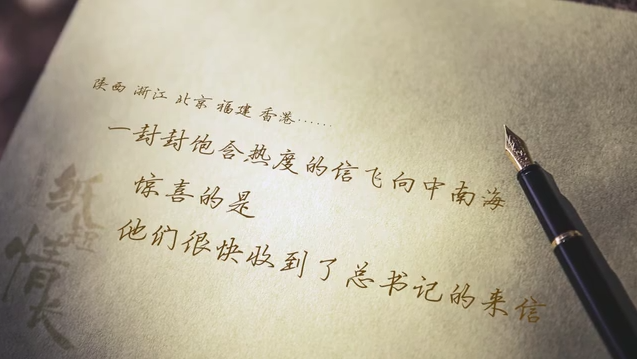 陕西 浙江 北京 福建 香港……
一封封饱含热度的信飞向中南海
惊喜的是
他们很快收到了总书记的来信
纸短
情长